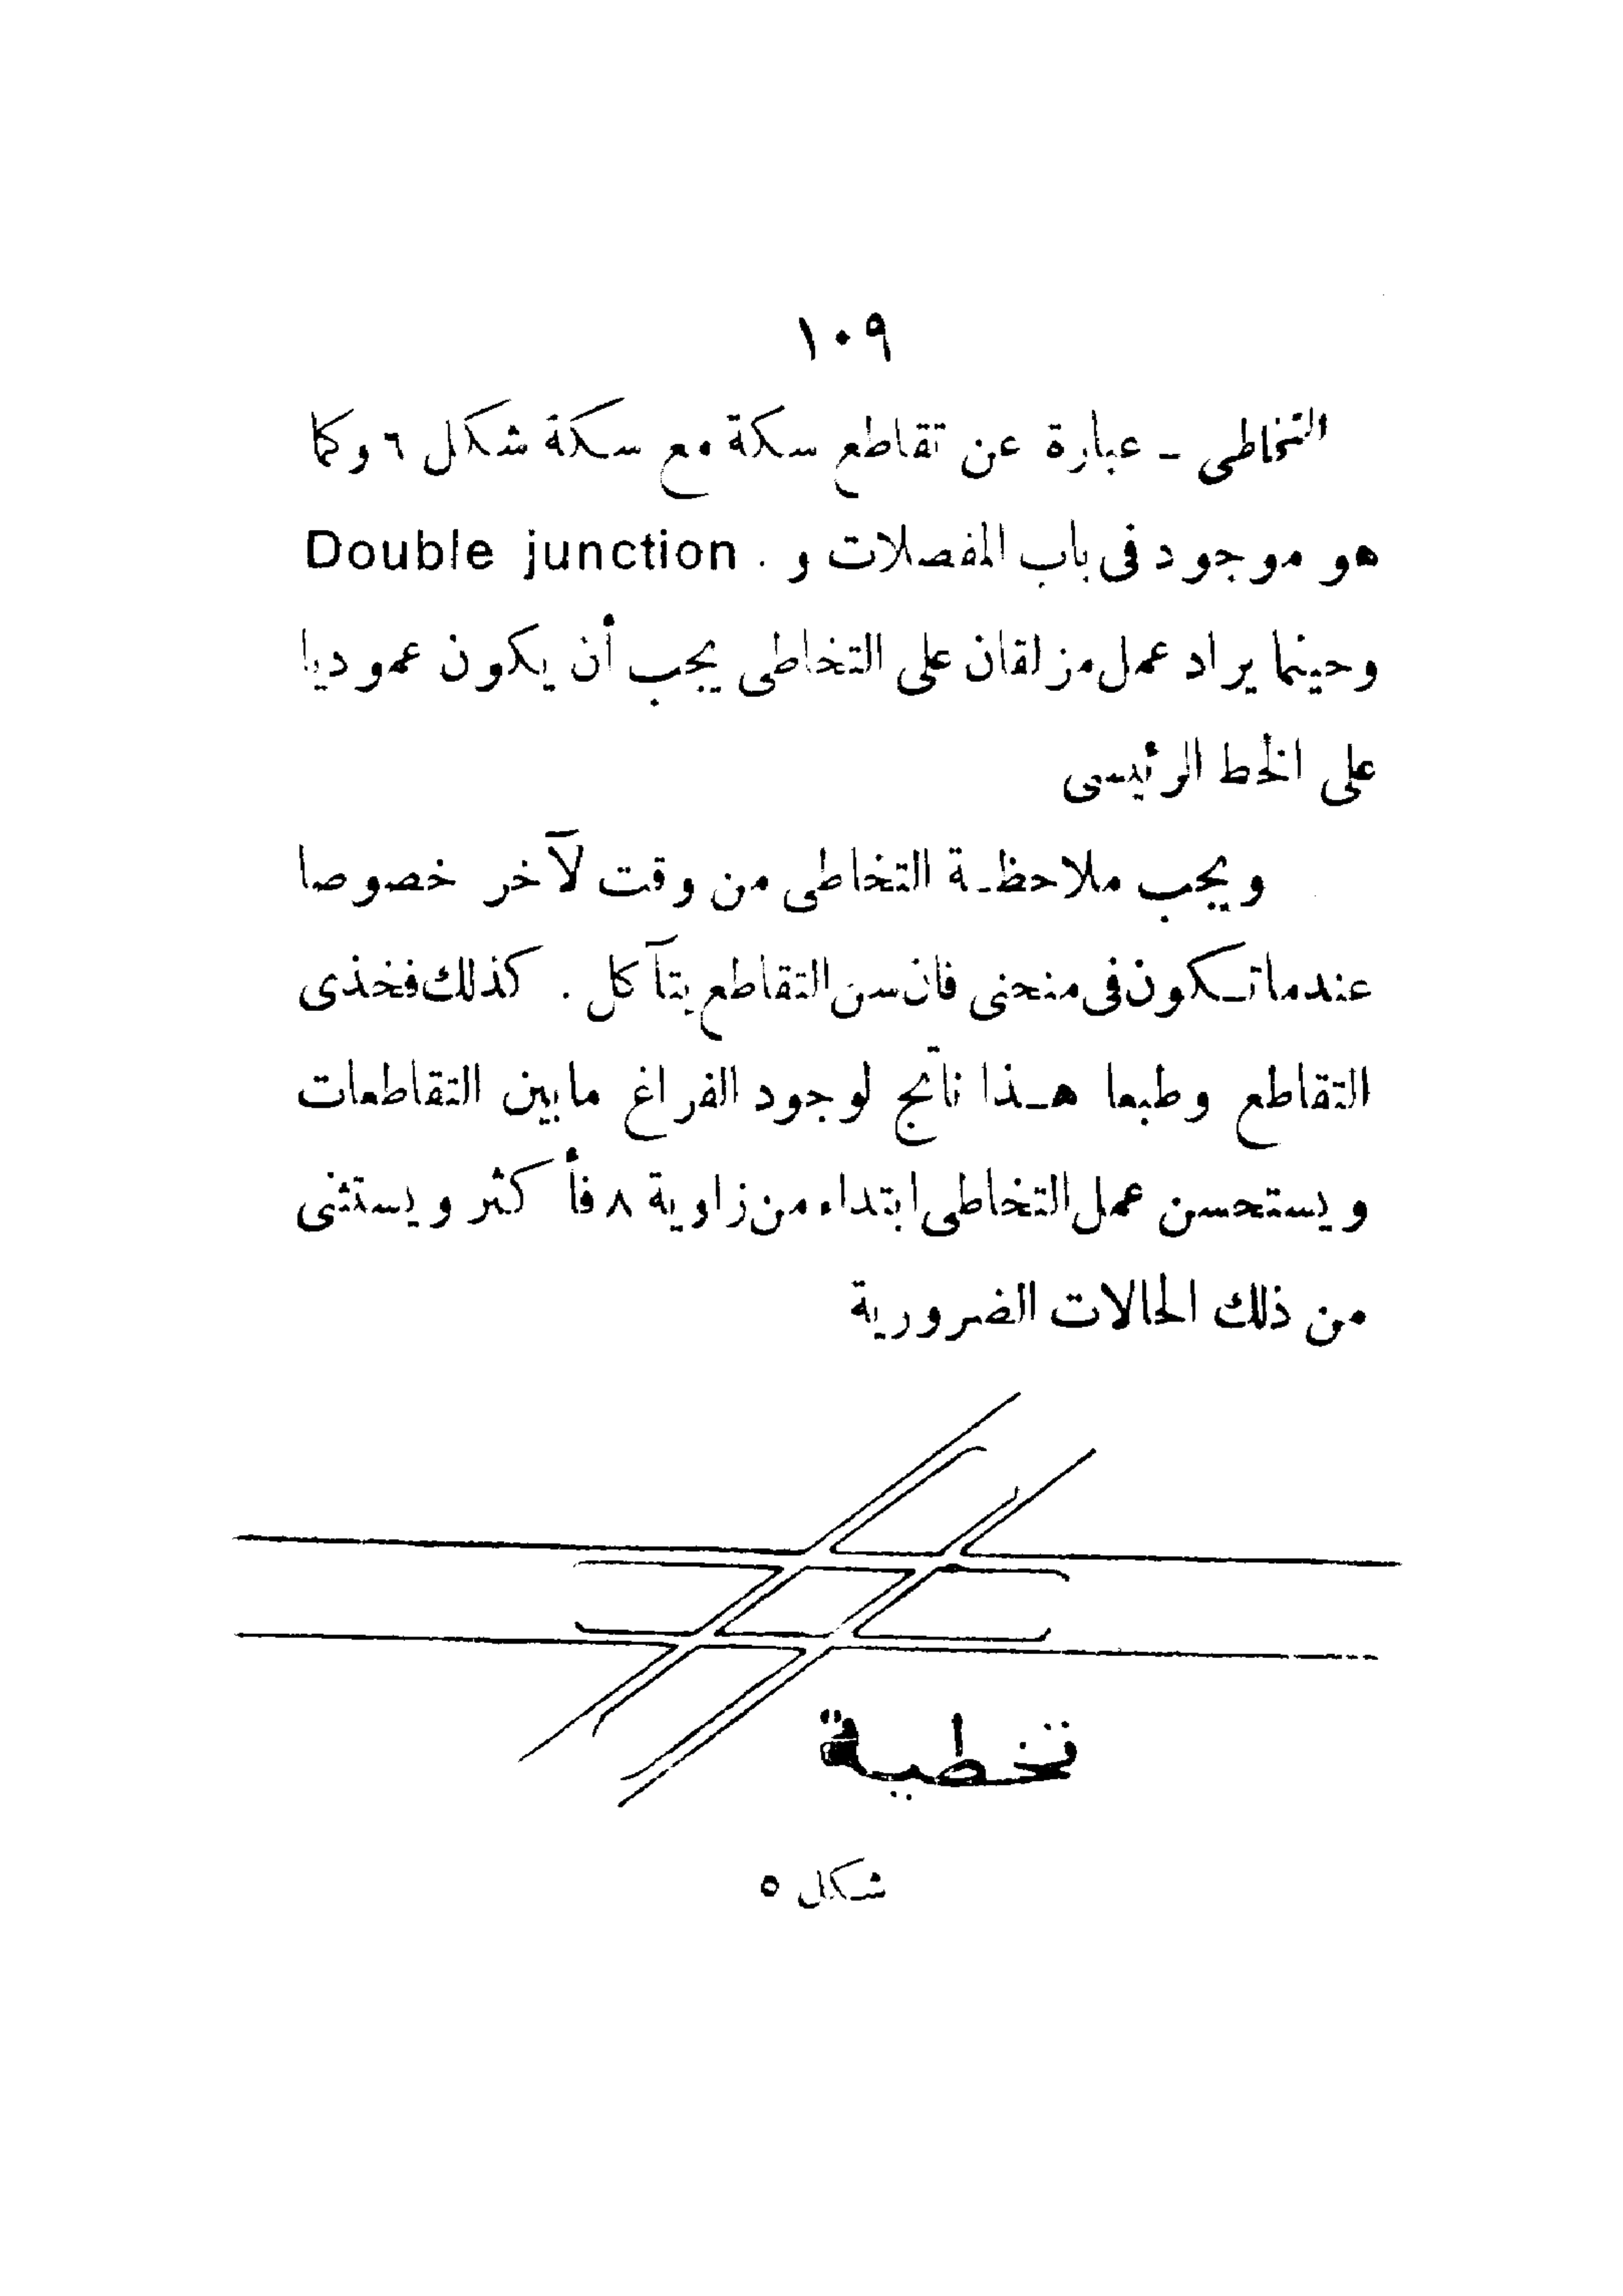 ١٠٩
التخاطى - عبارة عن تقاطع سكة مع سكة شكل ٦ وكما
هو موجود فى باب المفصلات و . Double junction
وحينما يراد عمل مزلقان على التخاطى يجب أن يكون عموديا
على الخط الرئيسى
ويجب ملاحظـة التخاطى من وقت لآخر خصوصا
عندما تـكون فى منحنى فان سن التقاطع يتآكل . كذلك فخذى
التقاطع وطبعا هـذا ناتج لوجود الفراغ مابين التقاطعات
ويستحسن عمل التخاطى ابتداء من زاوية ٨ فأكثر ويستثنى
من ذلك الحالات الضرورية
تخطية
شكل ٥